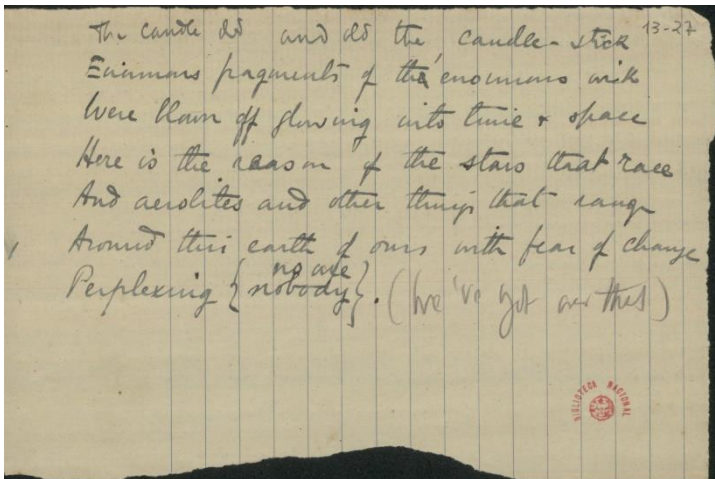 13-27
The candle did and did the candle-stick
Enormous fragments of the enormous wick
Were blown off glowing into time & space
Here is the reason of the stars that race
And aerolites and other things that range
Around this earth of ours with fear of change
no one
Perplexing {nobody}. (We've got over )
BIBLIOTECA NACIONAL